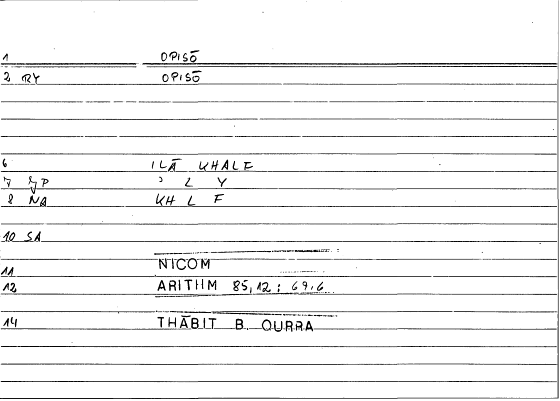 1 OPISŌ
2 RY OPISŌ
6 ILĀ KHALF
7 ʾ L Y
8 NA KH L F
10 SA
11 NICOM
12 ARITHM 85,12 : 69,6
14 THĀBIT B. QURRA